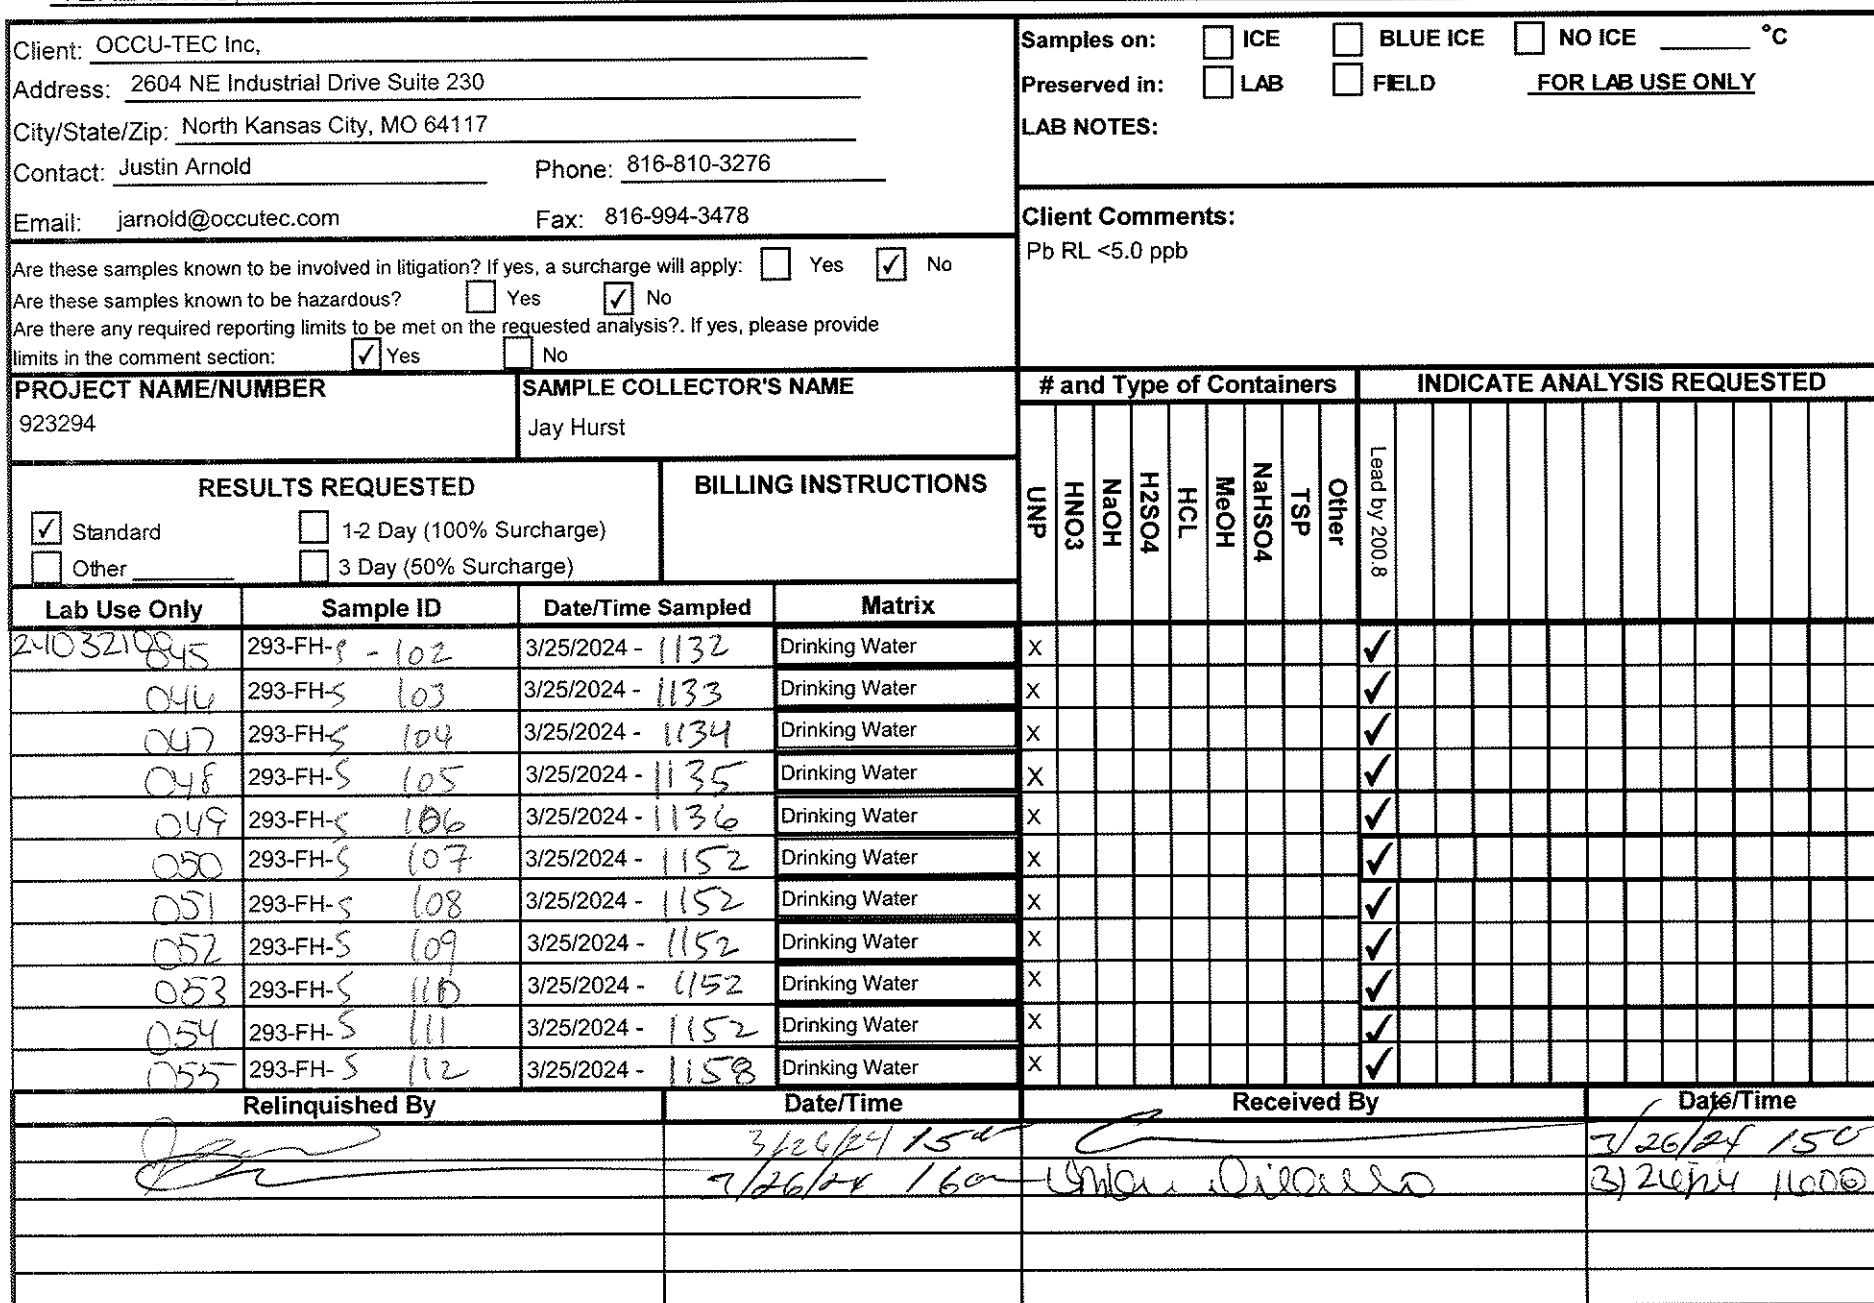 Client: OCCU-TEC Inc,
Address: 2604 NE Industrial Drive Suite 230
City/State/Zip: North Kansas City, MO 64117
Contact: Justin Arnold Phone: 816-810-3276
Email: jarnold@occutec.com Fax: 816-994-3478
Samples on: ICE BLUE ICE NO ICE ______ °C
Preserved in: LAB FIELD FOR LAB USE ONLY
LAB NOTES:
Client Comments:
Pb RL <5.0 ppb
Are these samples known to be involved in litigation? If yes, a surcharge will apply: Yes ✓ No
Are these samples known to be hazardous? Yes ✓ No
Are there any required reporting limits to be met on the requested analysis?. If yes, please provide
limits in the comment section: ✓ Yes No
PROJECT NAME/NUMBER SAMPLE COLLECTOR'S NAME
923294 Jay Hurst
# and Type of Containers INDICATE ANALYSIS REQUESTED
RESULTS REQUESTED BILLING INSTRUCTIONS
✓ Standard 1-2 Day (100% Surcharge)
Other ______ 3 Day (50% Surcharge)
UNP HNO3 NaOH H2SO4 HCL MeOH NaHSO4 TSP Other Lead by 200.8
Lab Use Only Sample ID Date/Time Sampled Matrix
045 293-FH-S - 102 3/25/2024 - 1132 Drinking Water X ✓
046 293-FH-S 103 3/25/2024 - 1133 Drinking Water X ✓
047 293-FH-S 104 3/25/2024 - 1134 Drinking Water X ✓
048 293-FH-S 105 3/25/2024 - 1135 Drinking Water X ✓
049 293-FH-S 106 3/25/2024 - 1136 Drinking Water X ✓
050 293-FH-S 107 3/25/2024 - 1152 Drinking Water X ✓
051 293-FH-S 108 3/25/2024 - 1152 Drinking Water X ✓
052 293-FH-S 109 3/25/2024 - 1152 Drinking Water X ✓
053 293-FH-S 110 3/25/2024 - 1152 Drinking Water X ✓
054 293-FH-S 111 3/25/2024 - 1152 Drinking Water X ✓
055 293-FH-S 112 3/25/2024 - 1158 Drinking Water X ✓
Relinquished By Date/Time Received By Date/Time
3/26/24 3/26/24
3/26/24 3/26/24 1600